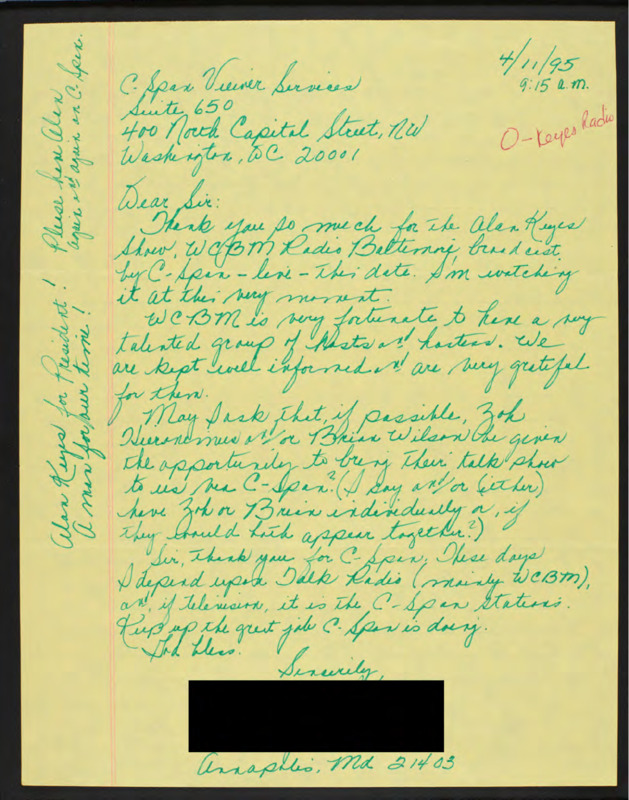 4/11/95
9:15 a.m.
O-Keyes Radio
C-Span Viewer Services
Suite 650
400 North Capital Street, NW
Washington, DC 20001
Dear Sir:
Thank you so much for the Alan Keyes
Show, WCBM Radio Baltimore, broadcast
by C-Span - live - this date. I'm watching
it at this very moment.
WCBM is very fortunate to have a very
talented group of hosts and hostess. We
are kept well informed and are very grateful
for them.
May I ask that, if possible, Zoh
Hieronimus and/or Brian Wilson be given
the opportunity to bring their talk show
to us via C-Span? (I say and/or (either)
have Zoh or Brian individually or, if
they would both appear together?)
Sir, thank you for C-Span. These days
I depend upon Talk Radio (mainly WCBM),
and, if television, it is the C-Span stations.
Keep up the great job C-Span is doing.
God bless.
Sincerely,
Annapolis, Md 21403
Alan Keyes for President!
A man for our time!
Please have Alan
again and again on C-Span.